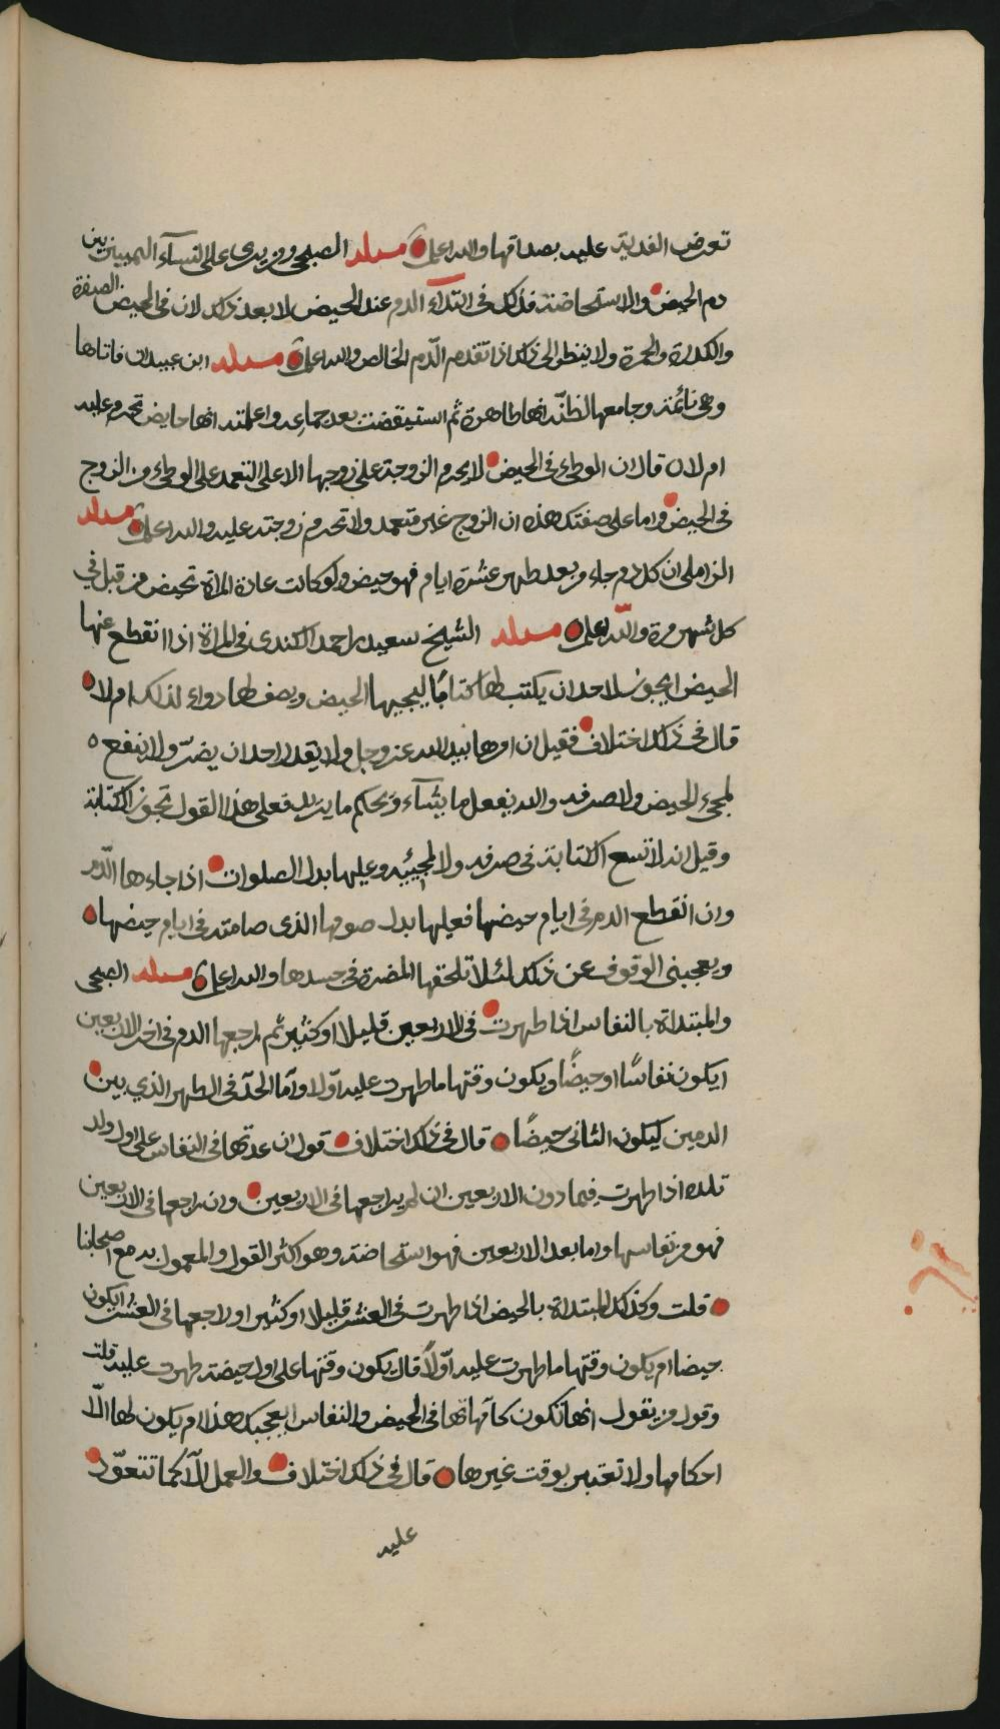 تعرض الفدية عليه بصداقها والله اعلم مسئلة الصبحي ومن يرى على النساء التمييز بين
دم الحيض والاستحاضة فذلك في ابتداء الدم عند الحيض لا بعد ذلك لان في الحيض الصفرة
والكدرة والحمرة ولا ينظر الى ذلك اذا تقدم الدّم الخالص والله اعلم مسئلة ابن عبيدان فاتاها
وهي نائمة وجامعها لظنّه انها طاهرة ثم استيقضت بعد جماعه واعلمته انها حايض تحرم عليه
ام لا قال ان الوطئ في الحيض لا يحرم الزوجة على زوجها الا على التعمد على الوطئ من الزوج
في الحيض واما على صفتك هذه ان الزوج غير متعمد ولا تحرم زوجته عليه والله اعلم مسئلة
الزاملي ان كل دم جاء من بعد طهر عشرة ايام فهو حيض ولو كانت عادة المراة تحيض من قبل في
كل شهر مرة والله اعلم مسئلة الشيخ سعيد بن احمد الكندي في المراة اذا انقطع عنها
الحيض ايجوز لاحد ان يكتب لها كتابًا ليجيها الحيض ويصف لها دواء لذلك ام لا
قال في ذلك اختلاف فقيل ان امرها بيد الله عز وجل ولا يقدر احد ان يضرّ ولا ينفع ه
لمجيء الحيض ولا صرفه والله يفعل ما يشآء ويحكم ما يريد فعلى هذا القول تجوز الكتابة
وقيل انه لا تسع الكتابة في صرفه ولا لمجيئه وعليها بدل الصلوات اذا جاءها الدّم
وان انقطع الدم في ايام حيضها فعليها بدل صومها الذي صامته في ايام حيضها
ويعجبني الوقوف عن ذلك لئلا تلحقها المضرة في جسدها والله اعلم مسئلة الصبحي
والمبتداة بالنفاس اذا طهرت في الاربعين قليلا او كثير ثم راجعها الدم في اخر الاربعين
ايكون نفاسًا او حيضًا ويكون وقتها ما طهرت عليه اوّلا وأما الحدّ في الطهر الذي بين
الدمين ليكون الثاني حيضًا قال في ذلك اختلاف قول ان عدتها في النفاس على اول ولد
تلده اذا طهرت فيما دون الاربعين ان لم يراجعها في الاربعين وان راجعها في الاربعين
فهو من نفاسها وما بعد الاربعين فهو استحاضة وهو اكثر القول والمعمول به مع اصحابنا
قلت وكذلك المبتداة بالحيض اذا طهرت في العشر قليلا او كثير او راجعها في العشر ايكون
حيضا ام يكون وقتها ما طهرت عليه اوّلاً قال يكون وقتها على اول حيضة طهرت عليه قلت
وقول من يقول انها تكون كآمهاتها في الحيض والنفاس ايعجبك هذا ام يكون لها الّا
احكامها ولا تعتبر بوقت غيرها قال في ذلك اختلاف والعمل الّا كما تتعوّد
عليه